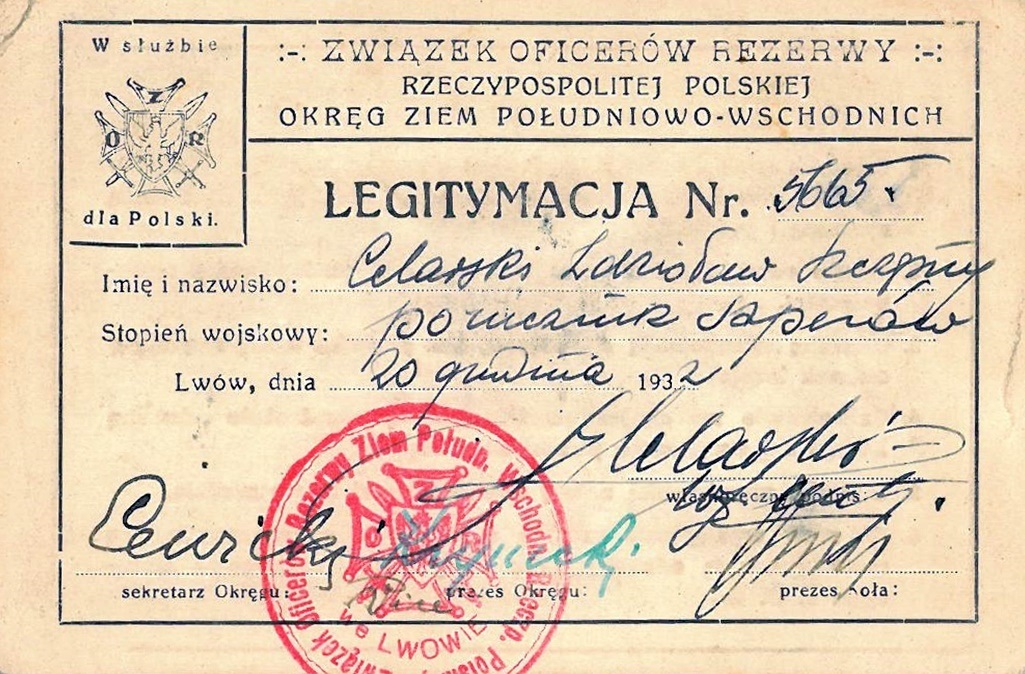 W służbie
Z
O R
dla Polski.
:-: ZWIĄZEK OFICERÓW REZERWY :-:
RZECZYPOSPOLITEJ POLSKIEJ
OKRĘG ZIEM POŁUDNIOWO-WSCHODNICH
LEGITYMACJA Nr. 5665
Imię i nazwisko: Celarski Zdzisław Szczęsny
Stopień wojskowy: porucznik saperów
Lwów, dnia 20 grudnia 1932
własnoręczny podpis
sekretarz Okręgu:
prezes Okręgu:
prezes Koła:
Związek Oficerów Rezerwy Ziem Połudn. Wschodn. Rzeczp. Polsk.
we LWOWIE